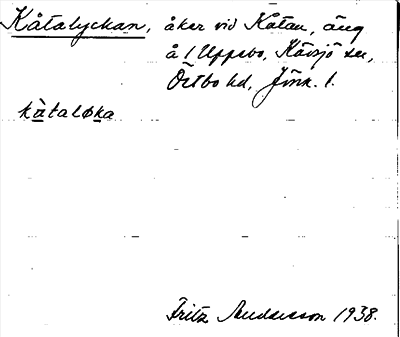 Kåtalyckan, åker vid Kåtan, äng
å 1 Uppebo, Kävsjö sn,
Östbo hd, Jönk. l.
kàtaløka
Fritz Andersson 1938.